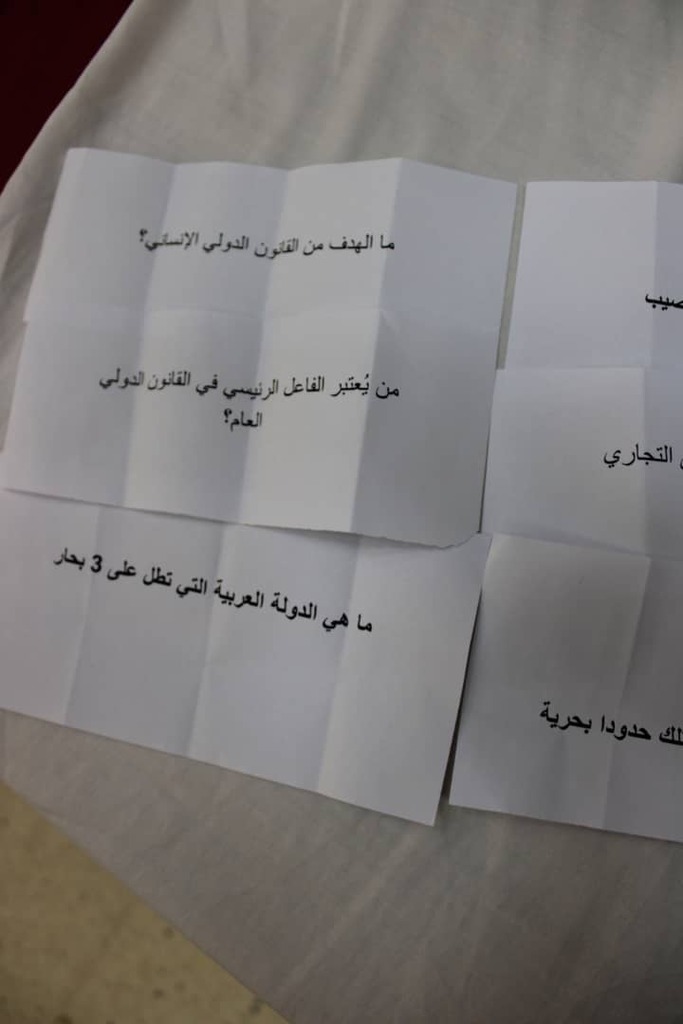 ما الهدف من القانون الدولي الإنساني؟
من يُعتبر الفاعل الرئيسي في القانون الدولي
العام؟
ما هي الدولة العربية التي تطل على 3 بحار
التجاري
حدودا بحرية